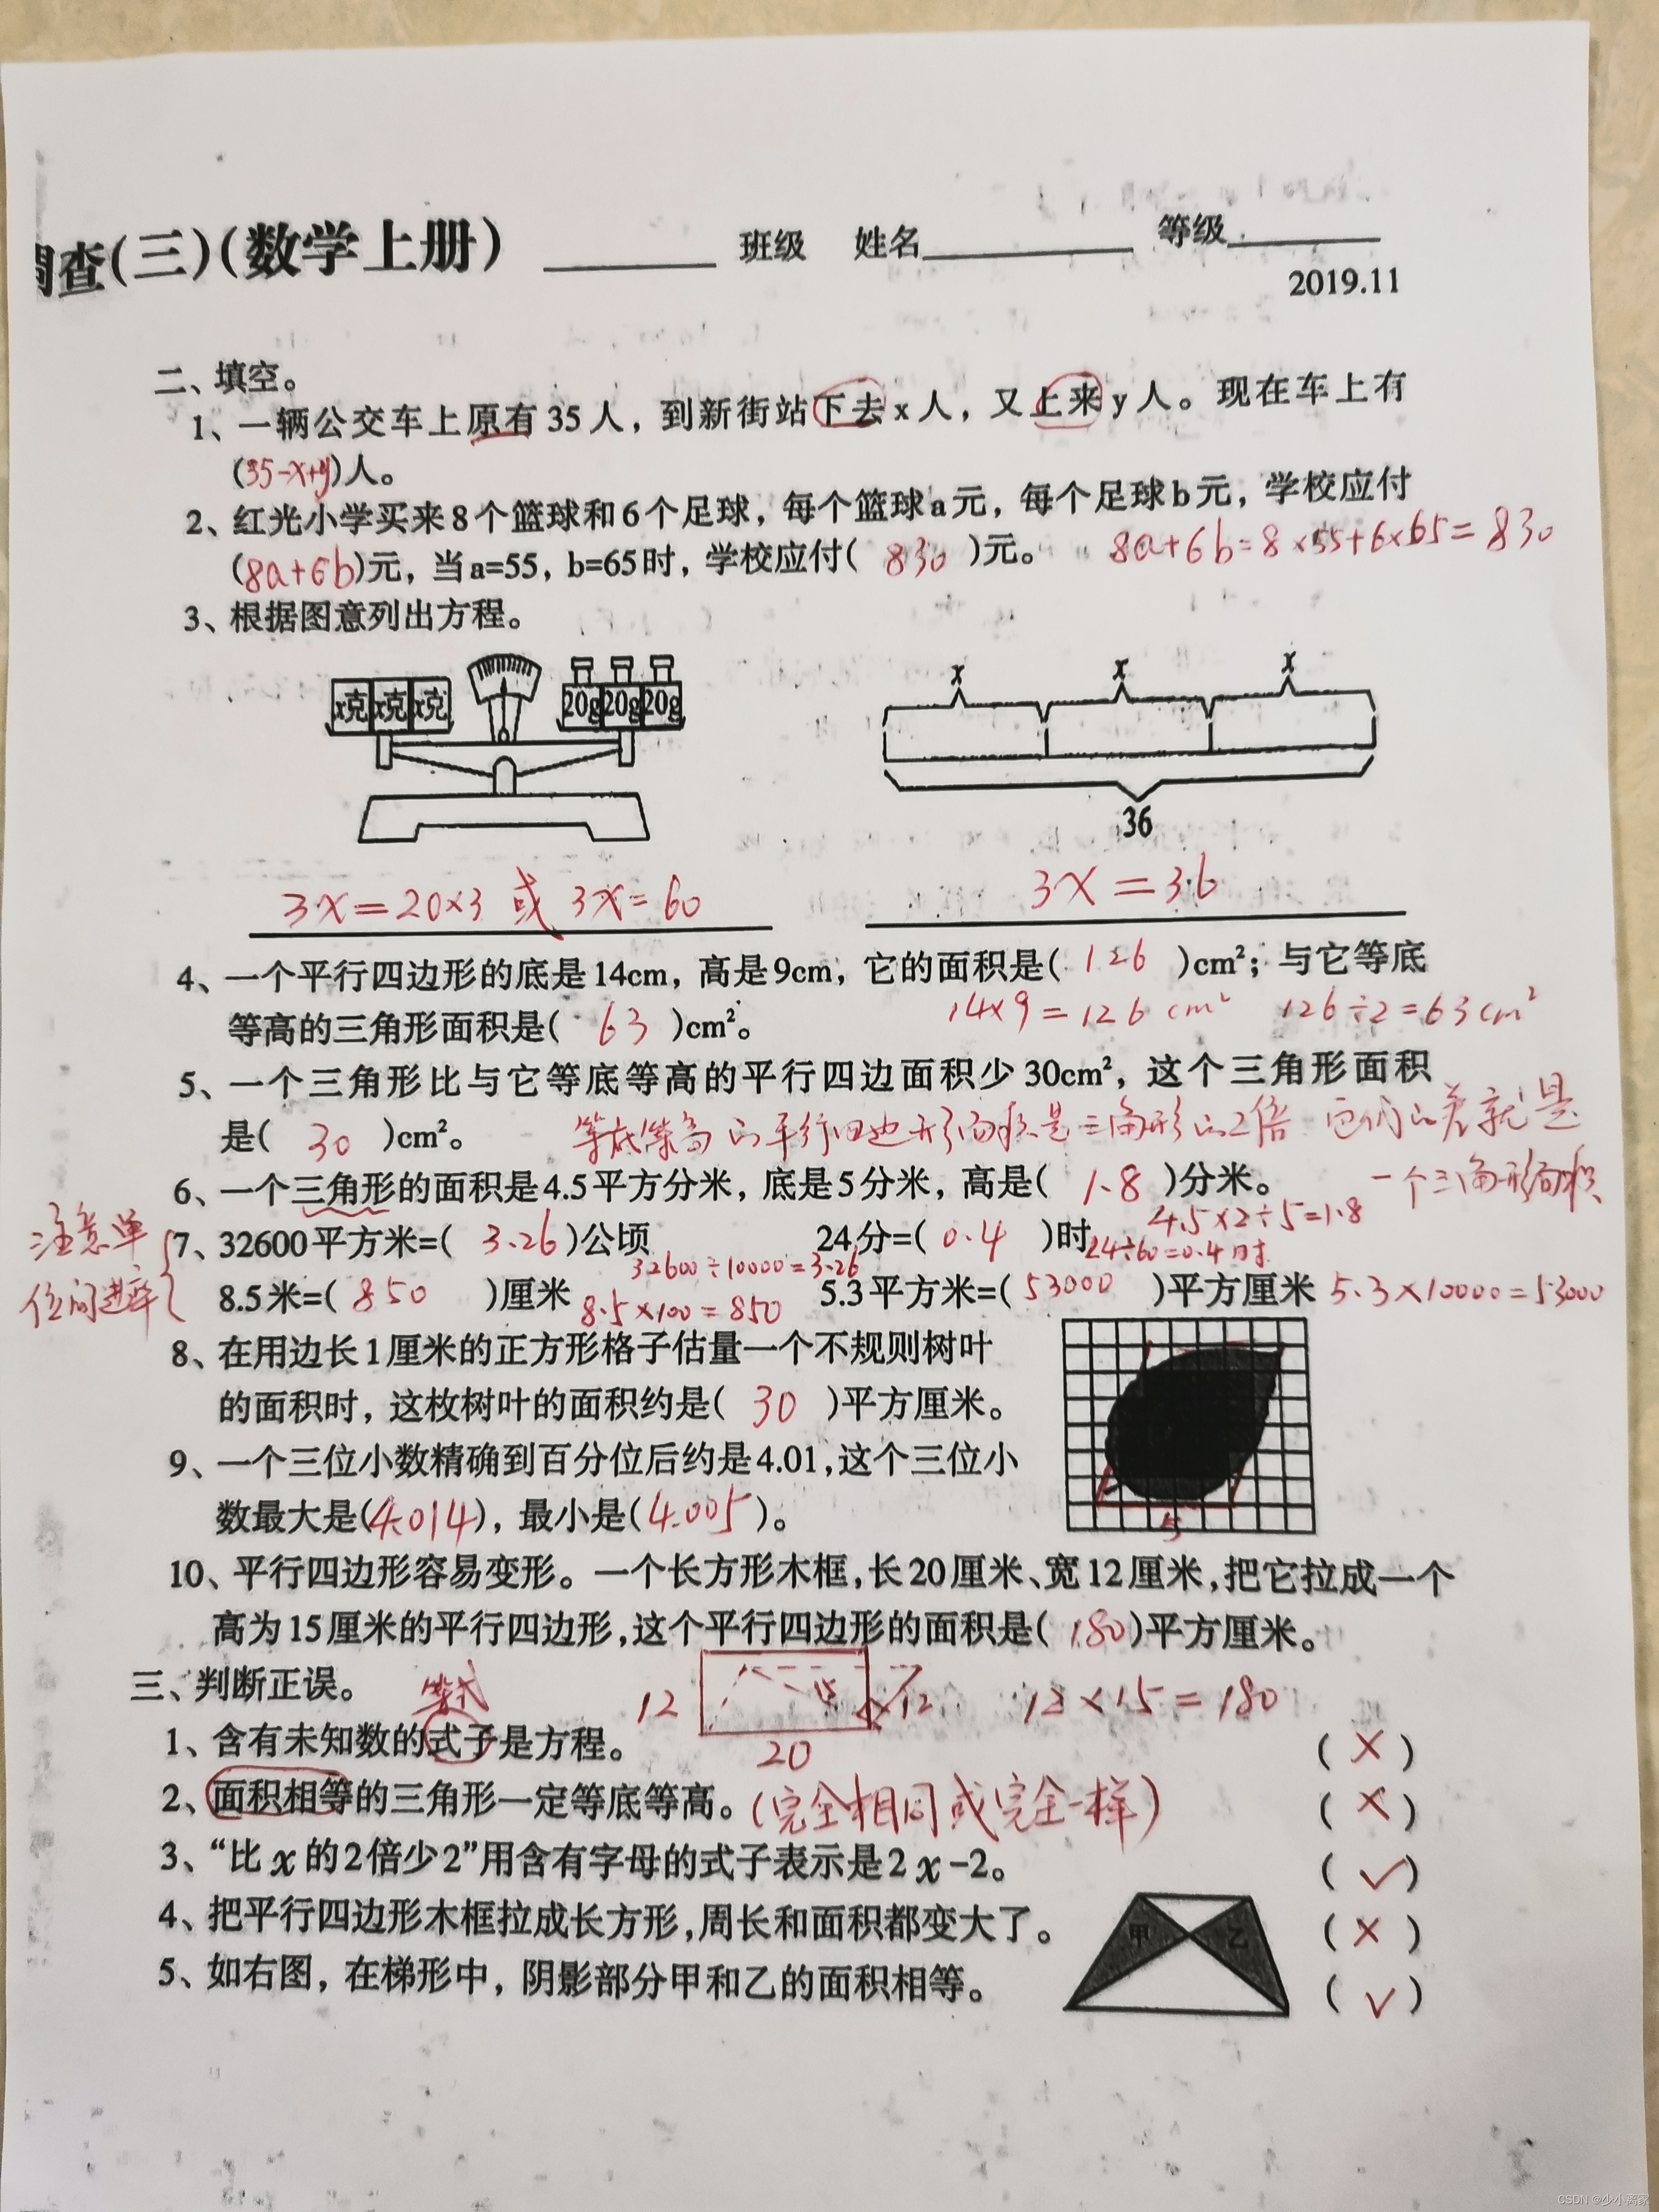 调查(三)(数学上册) 班级 姓名 等级
2019.11
二、填空。
1、一辆公交车上原有35人，到新街站下去x人，又上来y人。现在车上有
(35-x+y)人。
2、红光小学买来8个篮球和6个足球，每个篮球a元，每个足球b元，学校应付
(8a+6b)元，当a=55，b=65时，学校应付( 830 )元。 8a+6b=8×55+6×65=830
3、根据图意列出方程。
x克 x克 x克 20g 20g 20g
x x x
36
3x=20×3 或 3x=60
3x=36
4、一个平行四边形的底是14cm，高是9cm，它的面积是( 126 )cm²；与它等底
等高的三角形面积是( 63 )cm²。 14×9=126cm² 126÷2=63cm²
5、一个三角形比与它等底等高的平行四边面积少30cm²，这个三角形面积
是( 30 )cm²。 等底等高的平行四边形面积是三角形的2倍 它们的差就是
一个三角形面积
6、一个三角形的面积是4.5平方分米，底是5分米，高是( 1.8 )分米。
4.5×2÷5=1.8
注意单
位间进率
7、32600平方米=( 3.26 )公顷 24分=( 0.4 )时 24÷60=0.4时
32600÷10000=3.26
8.5米=( 850 )厘米 8.5×100=850 5.3平方米=( 53000 )平方厘米 5.3×10000=53000
8、在用边长1厘米的正方形格子估量一个不规则树叶
的面积时，这枚树叶的面积约是( 30 )平方厘米。
9、一个三位小数精确到百分位后约是4.01,这个三位小
数最大是(4.014)，最小是(4.005)。
5
10、平行四边形容易变形。一个长方形木框,长20厘米、宽12厘米,把它拉成一个
高为15厘米的平行四边形,这个平行四边形的面积是( 180 )平方厘米。
三、判断正误。
等式
12 15 12 12×15=180
20
1、含有未知数的式子是方程。 ( × )
2、面积相等的三角形一定等底等高。(完全相同或完全一样) ( × )
3、“比x的2倍少2”用含有字母的式子表示是2x-2。 ( ✓ )
4、把平行四边形木框拉成长方形,周长和面积都变大了。 ( × )
甲 乙
5、如右图，在梯形中，阴影部分甲和乙的面积相等。 ( ✓ )
CSDN @少小离家